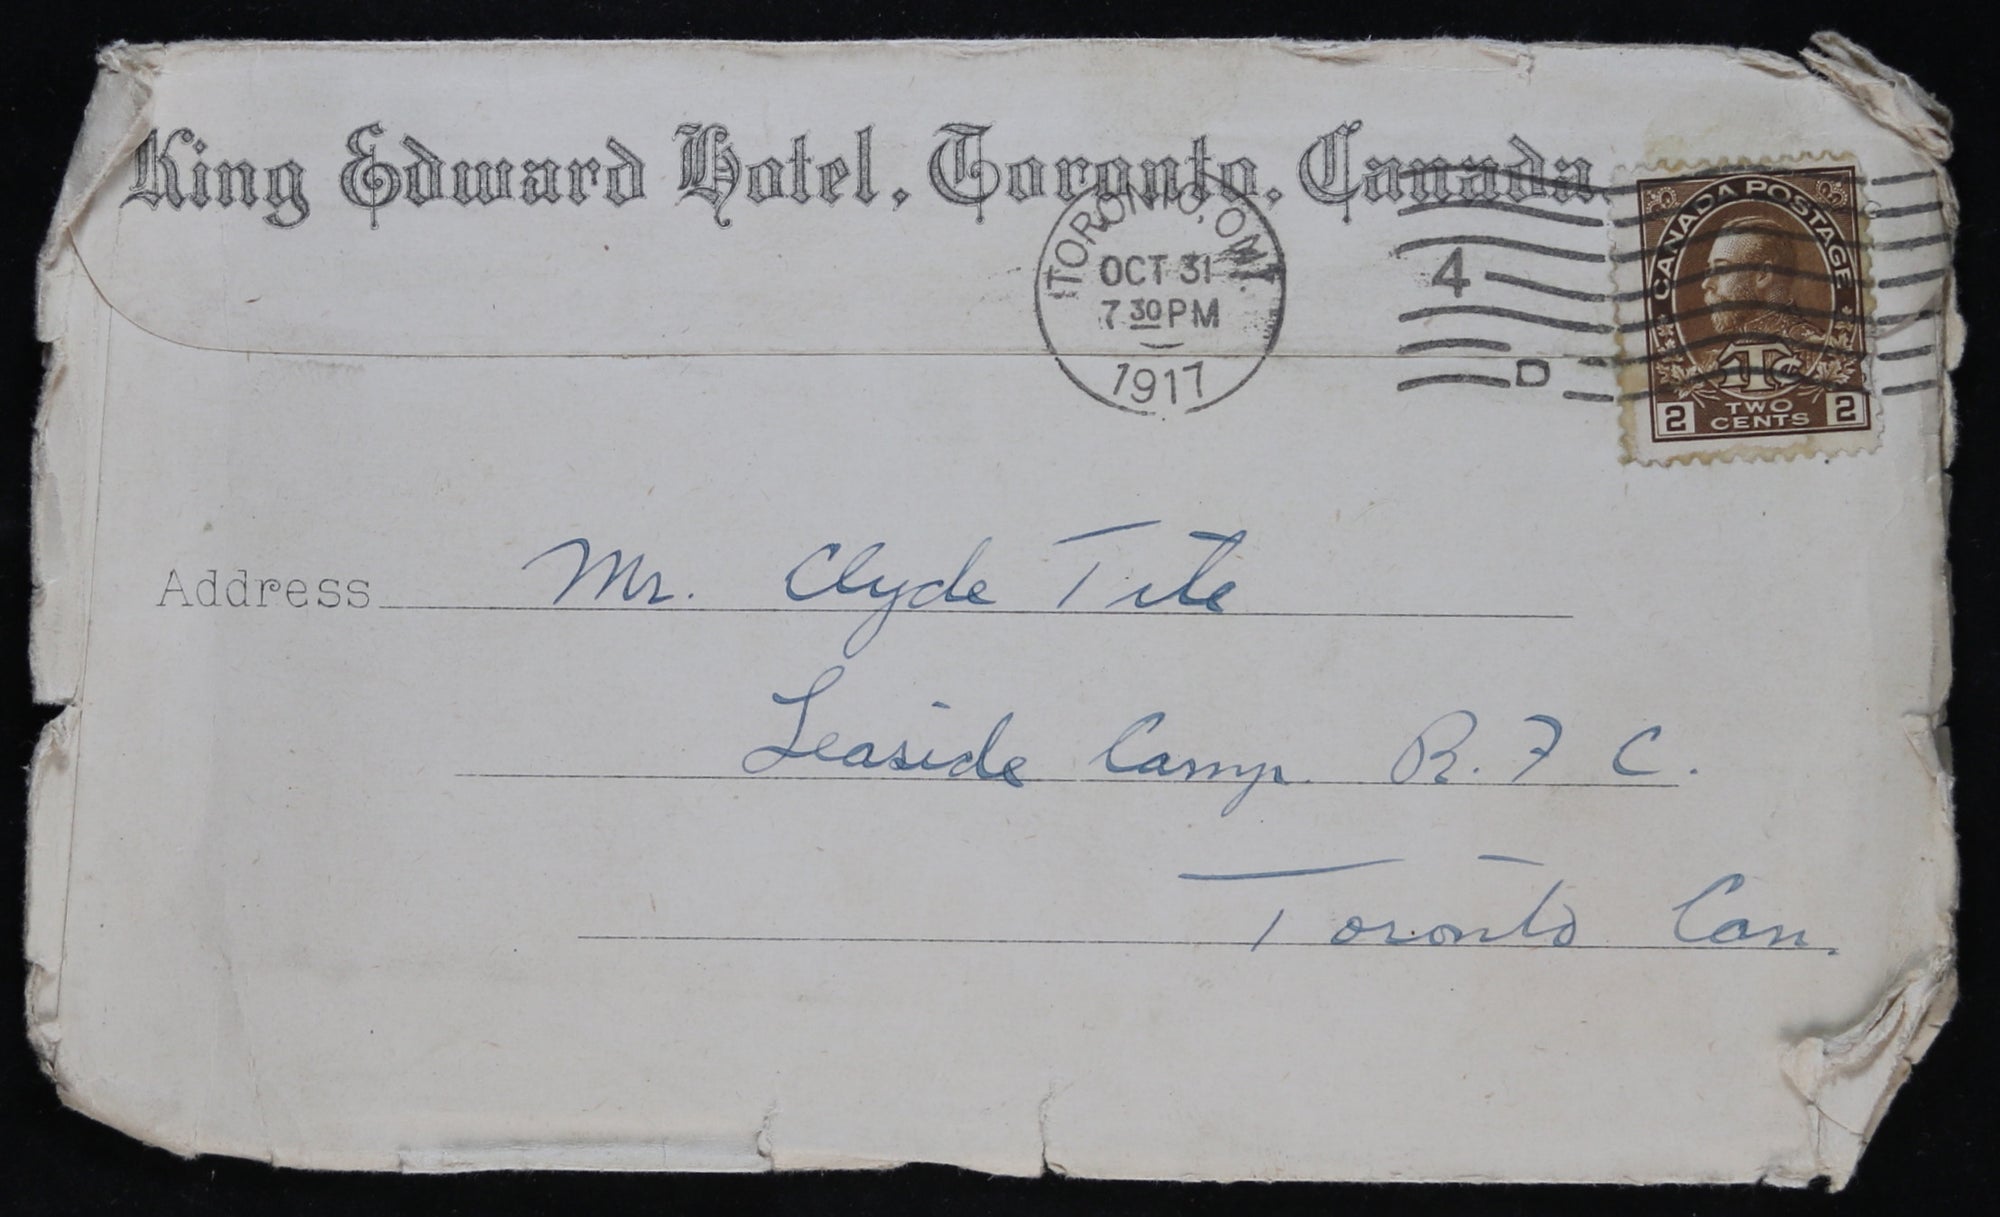 King Edward Hotel, Toronto, Canada.
TORONTO, ONT.
OCT 31
7 30 PM
1917
4
D
CANADA POSTAGE
1Tc
2 TWO CENTS 2
Address Mr. Clyde Tite
Leaside Camp R. F C.
Toronto Can.